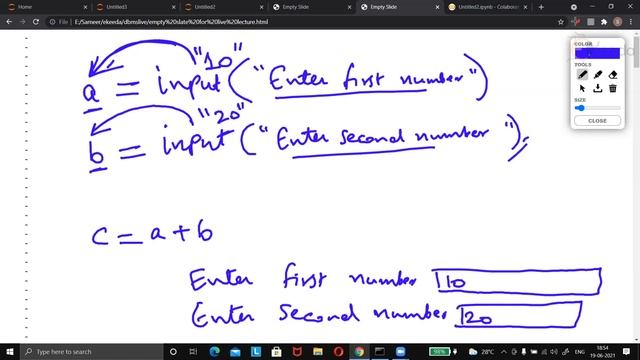 Home
Untitled3
Untitled2
Empty Slide
Empty Slide
Untitled2.ipynb - Colaborato
File | E:/Sameer/ekeeda/dbmslive/empty%20slate%20for%20live%20lecture.html
COLOR
TOOLS
SIZE
CLOSE
"10"
a = input("Enter first number")
"20"
b = input("Enter second number");
c = a + b
Enter first number 10
Enter second number 20
Type here to search
98%
28°C
ENG
18:54
19-06-2021